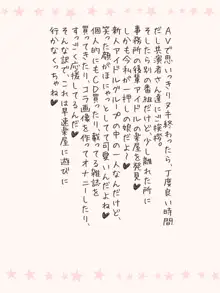 AVで思いっきりヌキ終わったら、丁度良い時間
だし共演者さん達にご挨拶。
そしたら別の番組だけど、少し離れた所に
事務所の後輩アイドルの楽屋を発見♥
しかも今私が一押しの娘だよ?♥
新人アイドルグループの中の一人なんだけど、
笑った顔がほにゃっとしてて可愛いんだよね♥
個人的にもCD買ったり、載ってる雑誌を
買ってきたり、コラ画像を作ってオナニーしたり、
すっごく応援してるんだ♥
そんな訳で、これは早速楽屋に遊びに
行かなくっちゃね♥